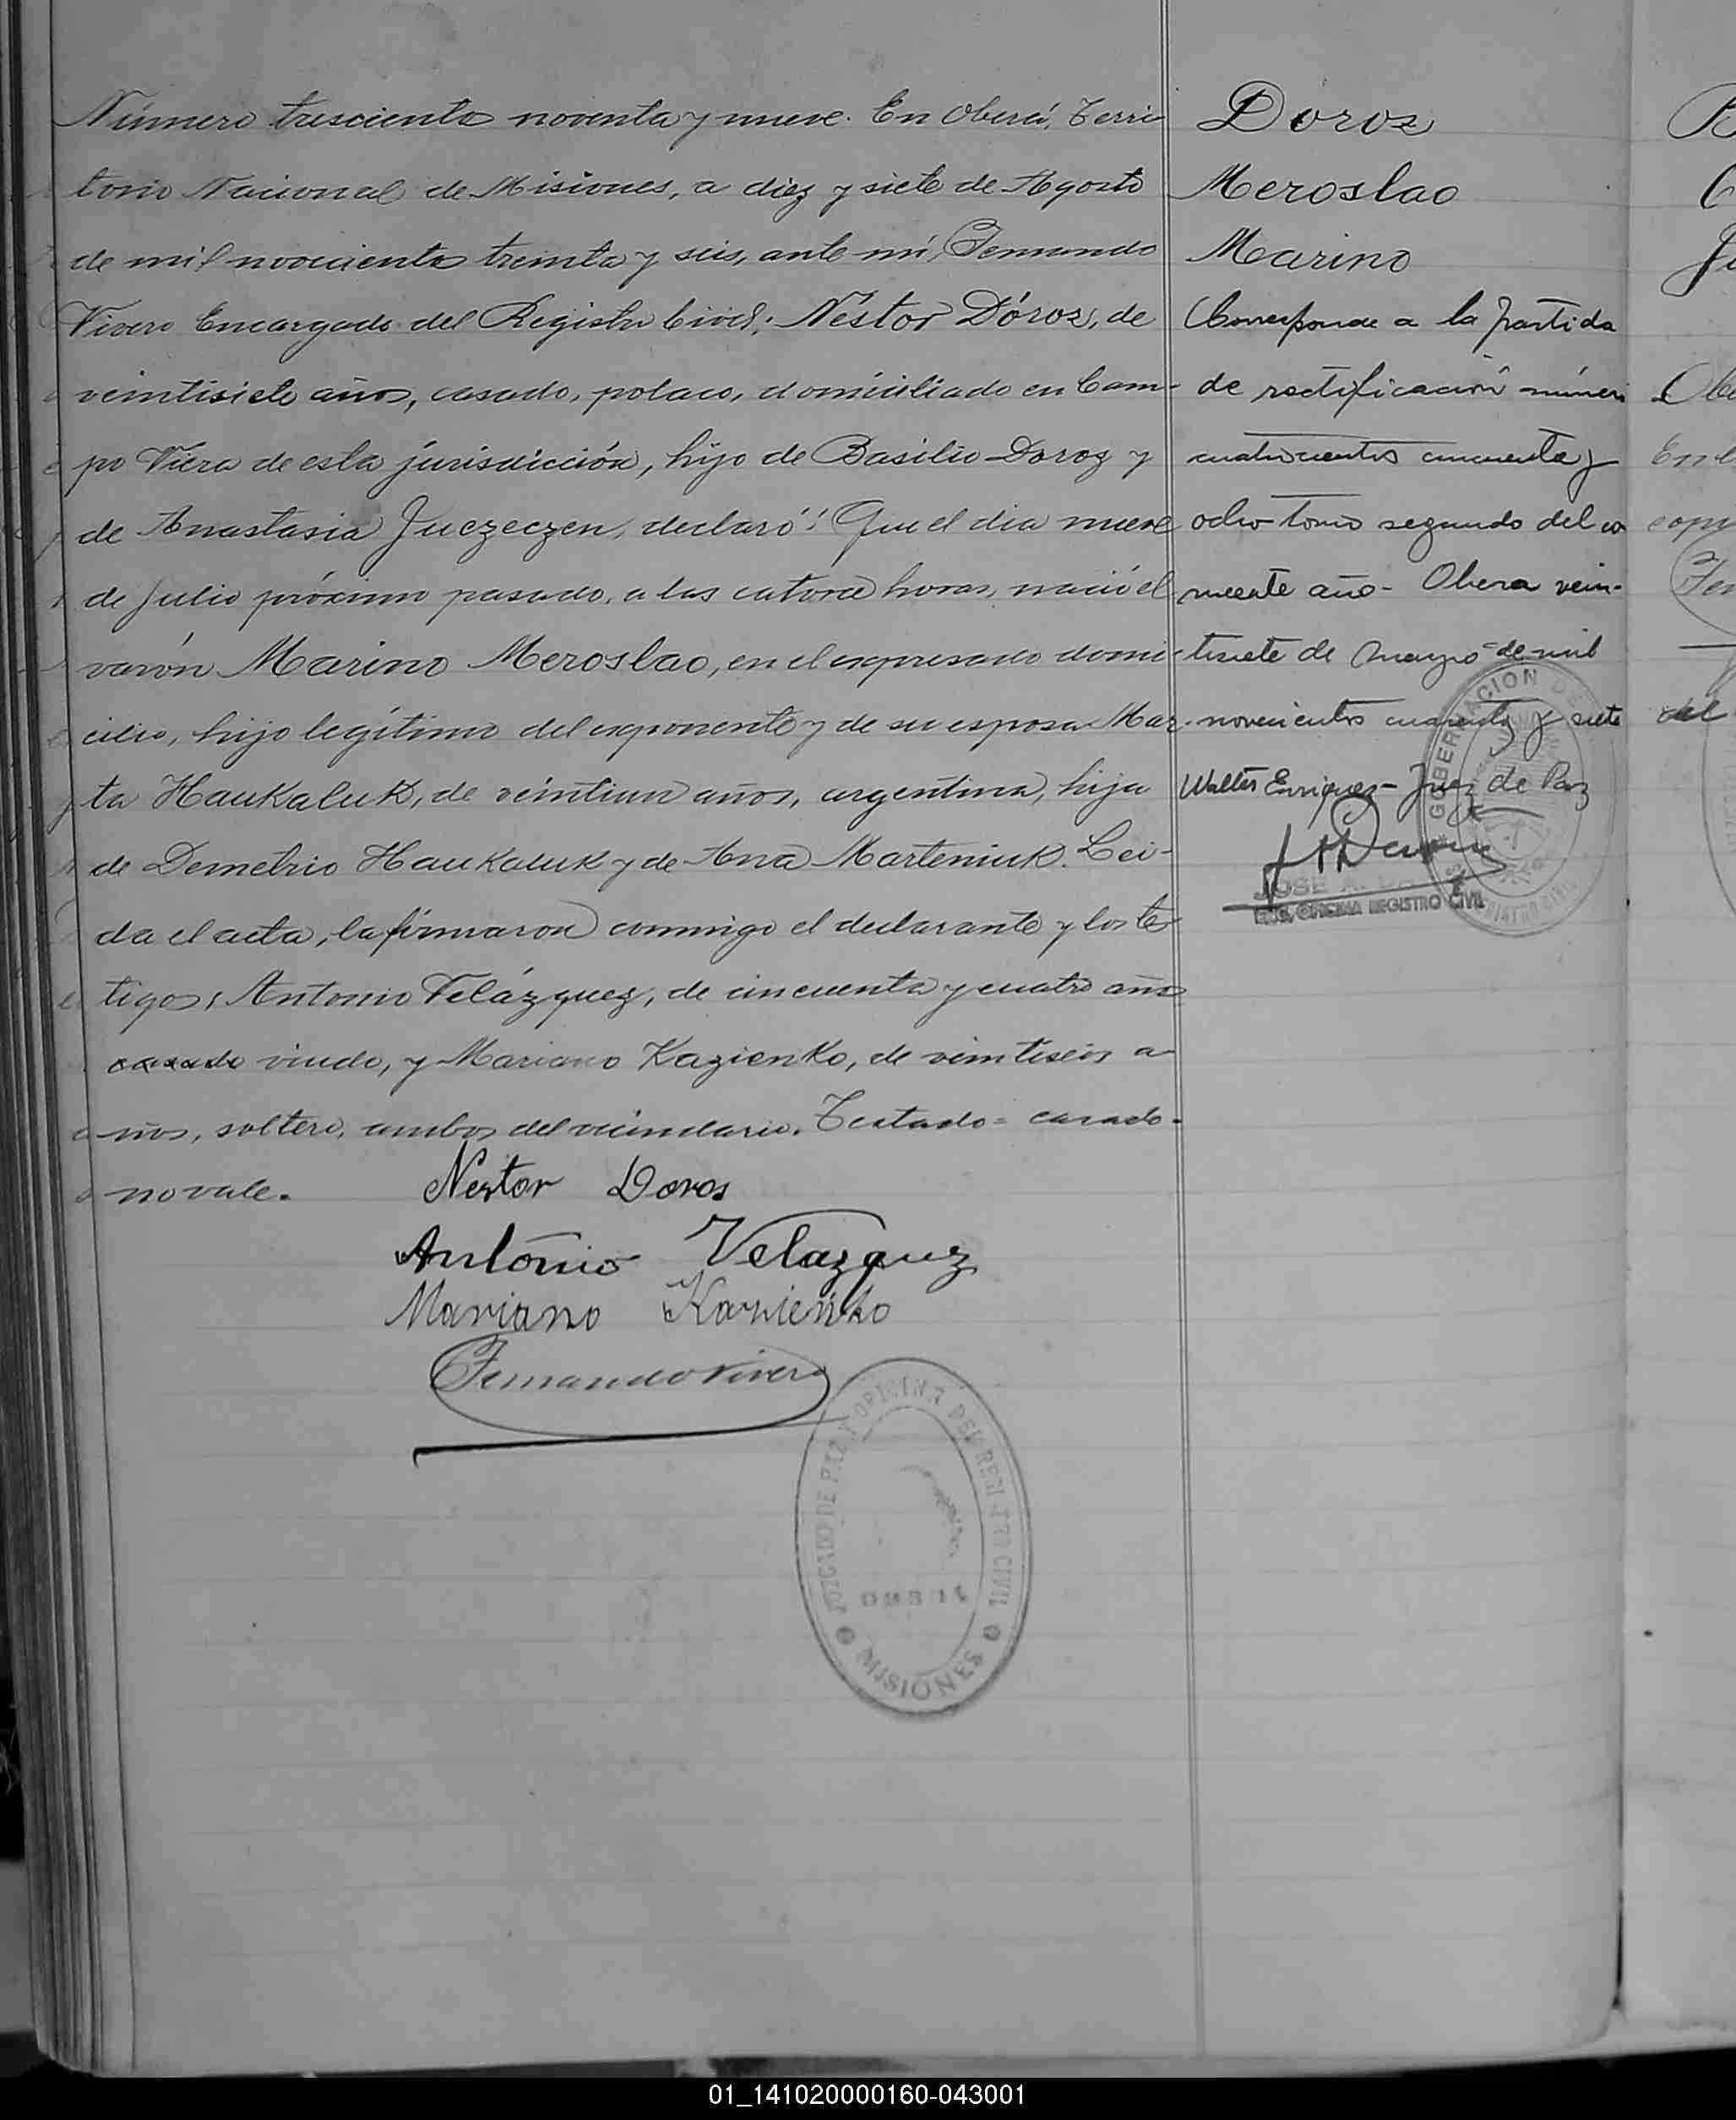 Número tresciento noventa y nueve. En Oberá, Terri-
torio Nacional de Misiones, a diez y siete de Agosto
de mil novecientos treinta y seis, ante mí, Fernando
Vivero Encargado del Registro Civil; Néstor Dóroz, de
veintisiete años, casado, polaco, domiciliado en Cam-
po Viera de esta jurisdicción, hijo de Basilio Doroz y
de Anastasia Juczeczen, declaró: Que el dia nueve
de Julio próximo pasado, a las catorce horas, nació el
varón Marino Meroslao, en el expresado domi-
cilio, hijo legítimo del exponente y de su esposa Mar-
ta HauKaluK, de veintiun años, argentina, hija
de Demetrio HauKaluK y de Ana MarteniuK. Lei-
da el acta, la firmaron conmigo el declarante y los te
tigos, Antonio Velázquez, de cincuenta y cuatro años
casado viudo, y Mariano KazienKo, de veintiseis a
ños, soltero, ambos del vecindario. Testado = casado =
no vale.
Nestor Doros
Antonio Velazquez
Mariano Kazienko
Fernando Vivero
JUZGADO DE PAZ Y OFICINA DEL REGISTRO CIVIL
MISIONES
Doroz
Meroslao
Marino
Corresponde a la partida
de rectificación número
cuatrocientos cincuenta y
ocho tomo segundo del co
rriente año - Obera vein-
tisiete de Mayo de mil
novecientos cuarenta y siete
Walter Enriquez - Juez de Paz
GOBERNACION DE
JOSE A.
ENC. OFICINA REGISTRO CIVIL
01_141020000160-043001